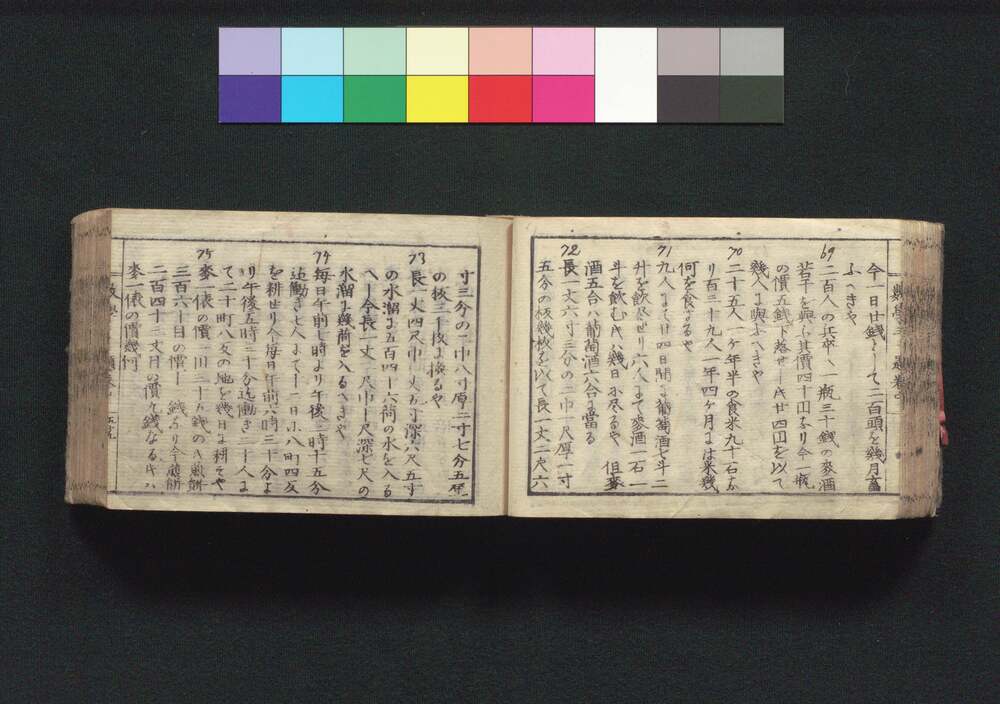 今一日廿錢ニして二百頭を幾月畜
ふへきや
69
二百人の兵卒へ一瓶三十錢の麥酒
若干を與ふ其價四十円なり今一瓶
の價五錢下落せし时廿四円を以て
幾人に與ふへきや
70
二十五人一ケ年半の食米九十石な
り百三十九人一年四ケ月には米幾
何を食するや
71
九人にて廿四日間に葡萄酒七斗二
升を飲尽せり六人にて麥酒一石一
斗を飲む时ハ幾日に尽るや 但麥
酒五合ハ葡萄酒六合に當る
72
長一丈六寸三分の二巾一尺厚一寸
五分の板幾枚を以て長一丈二尺六
寸三分の二巾八寸厚二寸七分五厘
の板二千枚に換るや
73
長一丈四尺巾 深六尺五寸
の水溜に五百四十六荷の水を入る
へし今長一丈 尺巾 尺深七尺の
水溜に幾荷を入るへきや
74
毎日午前七時より午後 時十五分
迄働き七人にて十一日に八町四反
を耕せり今毎日午前六時三十分よ
り午後五時三十分迄働き二十人に
て二十町八反の地を幾日に耕すや
75
麥一俵の價一円二十五錢の时蒸餅
三百六十目の價 錢なり今蒸餅
二百四十三文目の價 錢なる时ハ
麥一俵の價幾何